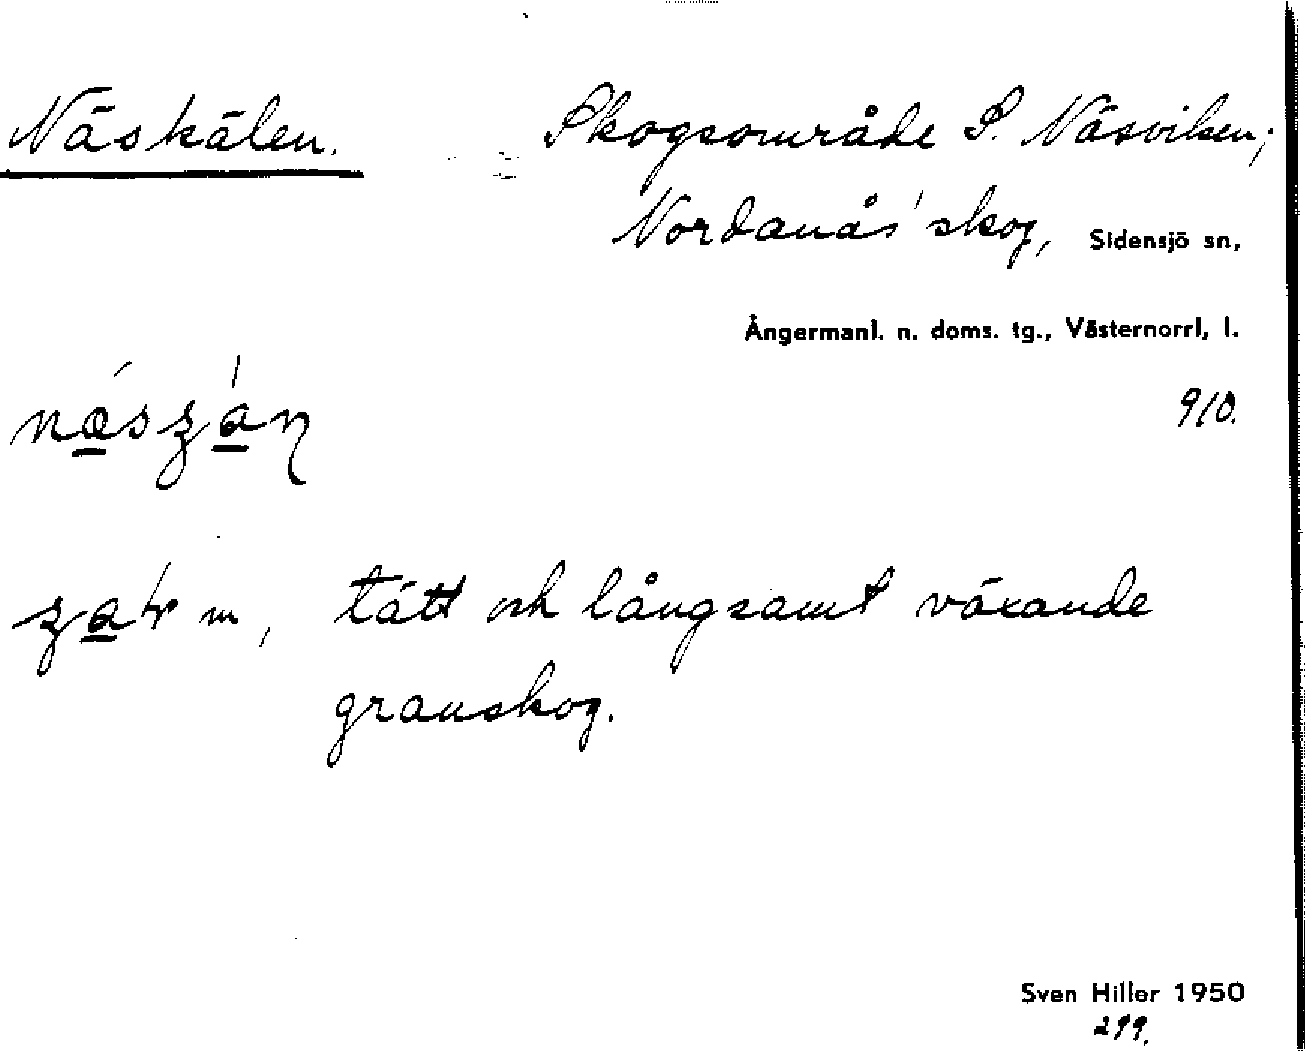 Näskälen.
Skogsområde S. Näsviken;
Nordanås' skog, Sidensjö sn,
Ångermanl. n. doms. tg., Västernorrl. l.
910.
tätt och långsamt växande
granskog.
Sven Hiller 1950
299.